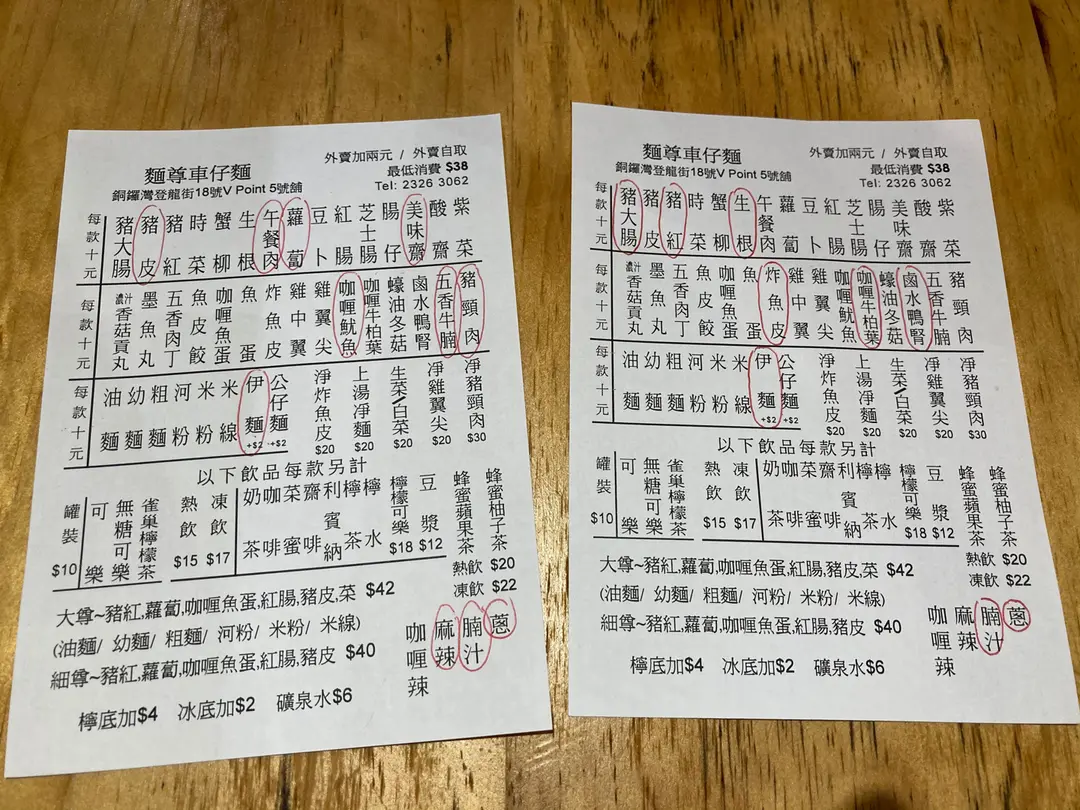 麵尊車仔麵
外賣加兩元 / 外賣自取
最低消費 $38
銅鑼灣登龍街18號V Point 5號舖
Tel: 2326 3062
每款十元 豬大腸 豬皮 豬紅 時菜 蟹柳 生根 午餐肉 蘿蔔 豆卜 紅腸 芝士腸 腸仔 美味齋 酸齋 紫菜
每款十元 濃汁香菇貢丸 墨魚丸 五香肉丁 魚皮餃 咖喱魚蛋 魚蛋 炸魚皮 雞中翼 雞翼尖 咖喱魷魚 咖喱牛柏葉 蠔油冬菇 鹵水鴨腎 五香牛腩 豬頸肉
每款十元 油麵 幼麵 粗麵 河粉 米粉 米線 伊麵+$2 公仔麵+$2 凈炸魚皮$20 上湯凈麵$20 生菜/白菜$20 凈雞翼尖$20 凈豬頸肉$30
以下飲品每款另計
罐裝$10 可樂 無糖可樂 雀巢檸檬茶 熱飲$15 凍飲$17 奶茶 咖啡 菜蜜 齋啡 利賓納 檸茶 檸水 檸檬可樂$18 豆漿$12 蜂蜜蘋果茶 蜂蜜柚子茶
熱飲$20
凍飲$22
大尊~豬紅,蘿蔔,咖喱魚蛋,紅腸,豬皮,菜 $42
(油麵/ 幼麵/ 粗麵/ 河粉/ 米粉/ 米線)
細尊~豬紅,蘿蔔,咖喱魚蛋,紅腸,豬皮 $40
檸底加$4 冰底加$2 礦泉水$6
咖喱辣 麻辣 腩汁 蔥
麵尊車仔麵
外賣加兩元 / 外賣自取
最低消費 $38
銅鑼灣登龍街18號V Point 5號舖
Tel: 2326 3062
每款十元 豬大腸 豬皮 豬紅 時菜 蟹柳 生根 午餐肉 蘿蔔 豆卜 紅腸 芝士腸 腸仔 美味齋 酸齋 紫菜
每款十元 濃汁香菇貢丸 墨魚丸 五香肉丁 魚皮餃 咖喱魚蛋 魚蛋 炸魚皮 雞中翼 雞翼尖 咖喱魷魚 咖喱牛柏葉 蠔油冬菇 鹵水鴨腎 五香牛腩 豬頸肉
每款十元 油麵 幼麵 粗麵 河粉 米粉 米線 伊麵+$2 公仔麵+$2 凈炸魚皮$20 上湯凈麵$20 生菜/白菜$20 凈雞翼尖$20 凈豬頸肉$30
以下飲品每款另計
罐裝$10 可樂 無糖可樂 雀巢檸檬茶 熱飲$15 凍飲$17 奶茶 咖啡 菜蜜 齋啡 利賓納 檸茶 檸水 檸檬可樂$18 豆漿$12 蜂蜜蘋果茶 蜂蜜柚子茶
熱飲$20
凍飲$22
大尊~豬紅,蘿蔔,咖喱魚蛋,紅腸,豬皮,菜 $42
(油麵/ 幼麵/ 粗麵/ 河粉/ 米粉/ 米線)
細尊~豬紅,蘿蔔,咖喱魚蛋,紅腸,豬皮 $40
檸底加$4 冰底加$2 礦泉水$6
咖喱辣 麻辣 腩汁 蔥